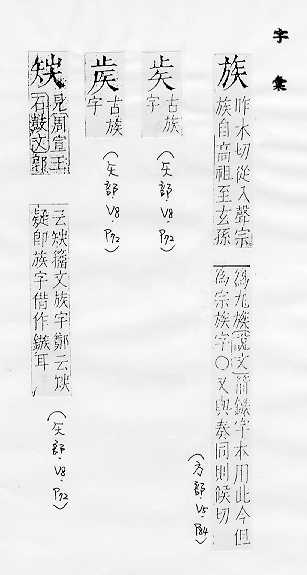 字彙
族
昨木切從入聲宗
族自高祖至玄孫
爲九族(說文)箭鏃字本用此今但
爲宗族字○又與奏同則候切
(方部.V5.P84)
古族
字
(矢部 V8 P92)
古族
字
(矢部 V8 P92)
見周宣王
石鼓文郭
云 籀文族字鄭云
疑即族字借作鏃耳
(矢部.V8.P92)